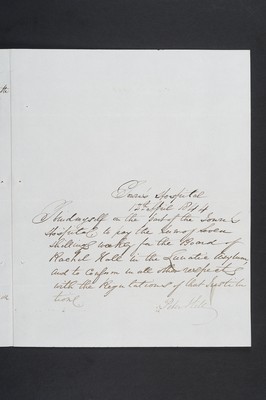 Hospital
12th April 1844
I bind myself on the part of the
Hospital to pay the sum of seven
Shillings weekly for the Board of
Rachel Hall in the Lunatic Asylum
and to conform in all other respects
with the Regulations of that Institu
tion